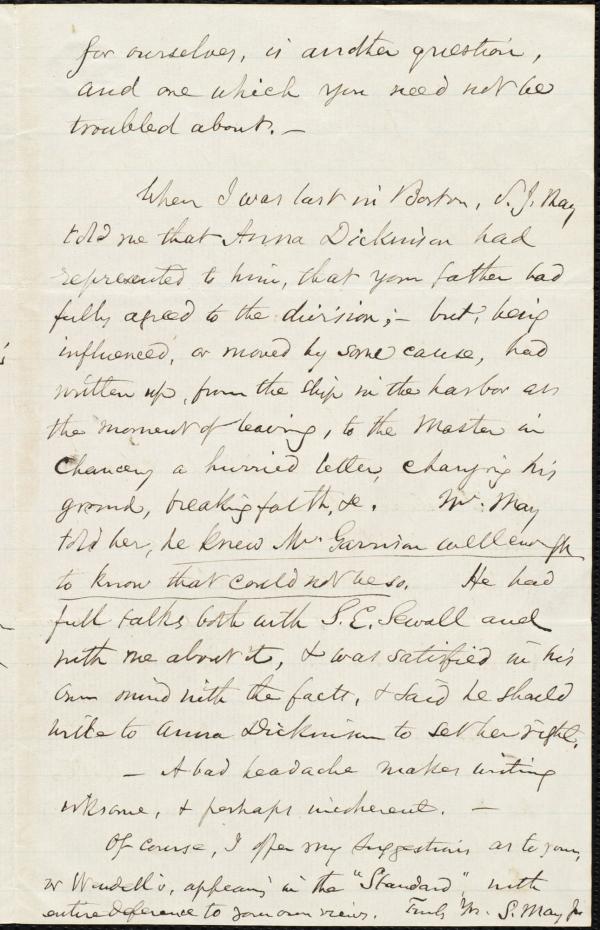 for ourselves, is another question,
and one which you need not be
troubled about. —
When I was last in Boston, S. J. May
told me that Anna Dickinson had
represented to him, that your father had
fully agreed to the division; – but, being
influenced, or moved by some cause, had
written up, from the ship in the harbor at
the moment of leaving, to the Master in
Chancery a hurried letter, changing his
ground, breaking faith, &c. Mr. May
told her, he knew Mr. Garrison well enough
to know that could not be so. He had
full talks both with S. E. Sewall and
with me about it, & was satisfied in his
own mind with the facts, & said he should
write to Anna Dickinson to set her right.
— A bad headache makes writing
irksome, & perhaps incoherent. —
Of course, I offer my suggestions as to your,
or Wendell's, appearing in the "Standard", with
entire deference to your own views. Truly Yrs. S. May Jr